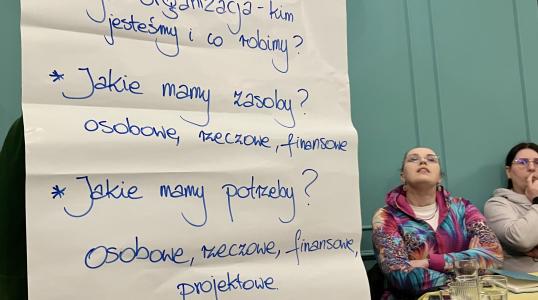 organizacja - kim
jesteśmy i co robimy?
* Jakie mamy zasoby?
osobowe, rzeczowe, finansowe
* Jakie mamy potrzeby?
osobowe, rzeczowe, finansowe,
projektowe.